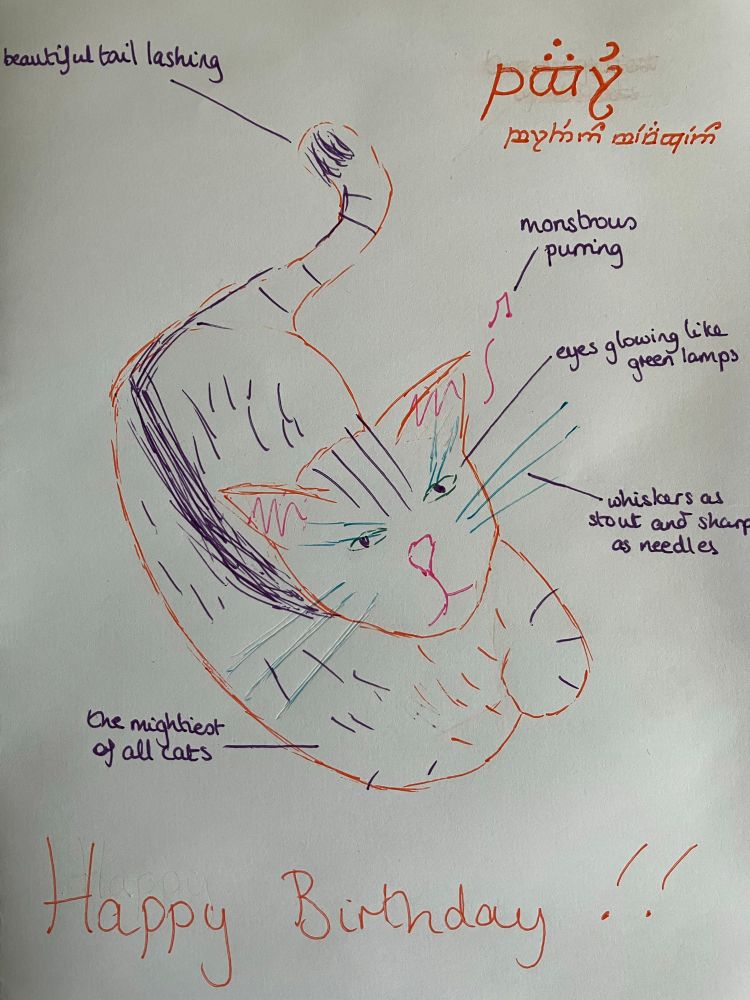 beautiful tail lashing
monstrous
purring
eyes glowing like
green lamps
whiskers as
stout and sharp
as needles
the mightiest
of all cats
Happy Birthday !!